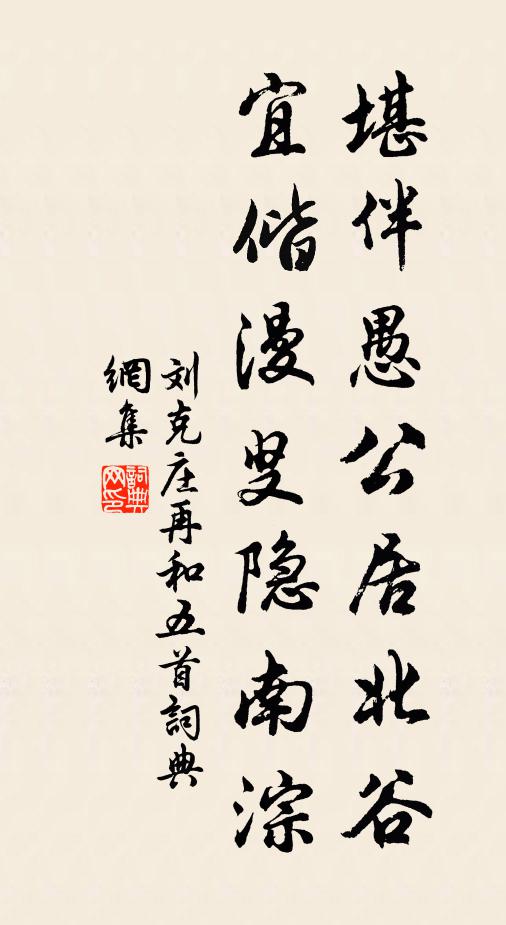 堪伴愚公居北谷
宜偕漫叟隐南淙
刘克庄再和五首詞典
網集
詞典
网印